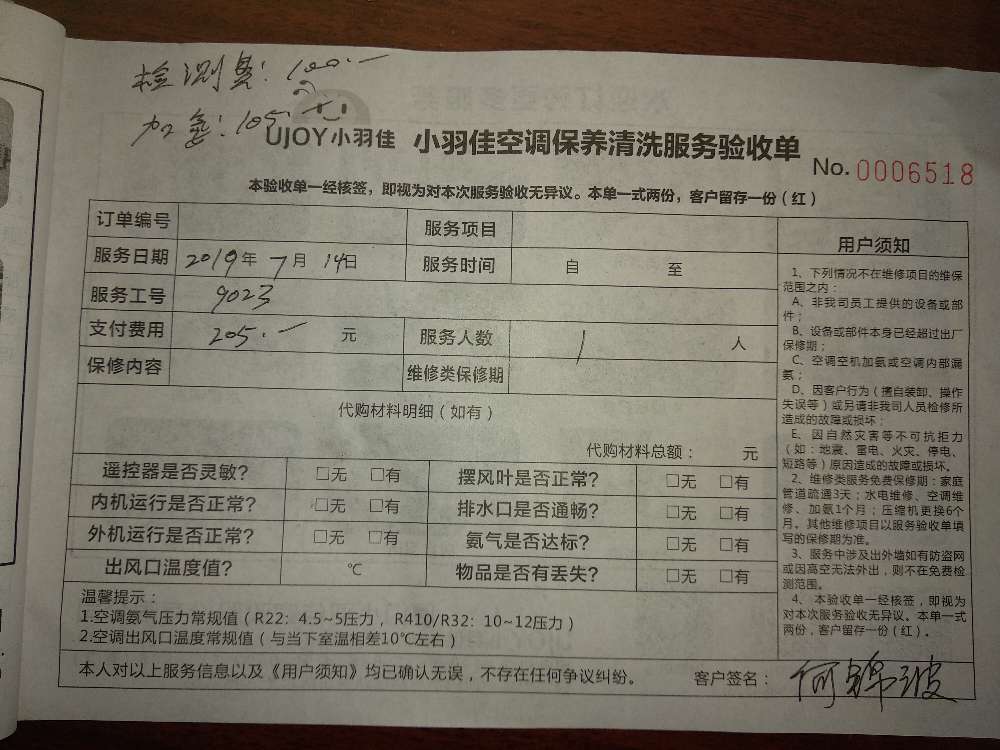 检测费：100.一
加氨：105.一
UJOY小羽佳 小羽佳空调保养清洗服务验收单
No. 0006518
本验收单一经核签，即视为对本次服务验收无异议。本单一式两份，客户留存一份（红）
订单编号 服务项目
服务日期 2019年 7月 14日 服务时间 自 至
服务工号 9023
支付费用 205.一 元 服务人数 1 人
保修内容 维修类保修期
代购材料明细（如有）
代购材料总额： 元
遥控器是否灵敏？ □无 □有 摆风叶是否正常？ □无 □有
内机运行是否正常？ □无 □有 排水口是否通畅？ □无 □有
外机运行是否正常？ □无 □有 氨气是否达标？ □无 □有
出风口温度值？ ℃ 物品是否有丢失？ □无 □有
温馨提示：
1.空调氨气压力常规值（R22：4.5~5压力，R410/R32：10~12压力）
2.空调出风口温度常规值（与当下室温相差10℃左右）
本人对以上服务信息以及《用户须知》均已确认无误，不存在任何争议纠纷。 客户签名：何锦波
用户须知
1、下列情况不在维修项目的维保
范围之内：
A、非我司员工提供的设备或部
件；
B、设备或部件本身已经超过出厂
保修期；
C、空调空机加氨或空调内部漏
氨；
D、因客户行为（擅自装卸、操作
失误等）或另请非我司人员检修所
造成的故障或损坏；
E、因自然灾害等不可抗拒力
（如：地震、雷电、火灾、停电、
短路等）原因造成的故障或损坏。
2、维修类服务免费保修期：家庭
管道疏通3天；水电维修、空调维
修、加氨1个月；压缩机更换6个
月。其他维修项目以服务验收单填
写的保修期为准。
3、服务中涉及出外墙如有防盗网
或因高空无法外出，则不在免费检
测范围。
4、本验收单一经核签，即视为
对本次服务验收无异议。本单一式
两份，客户留存一份（红）。